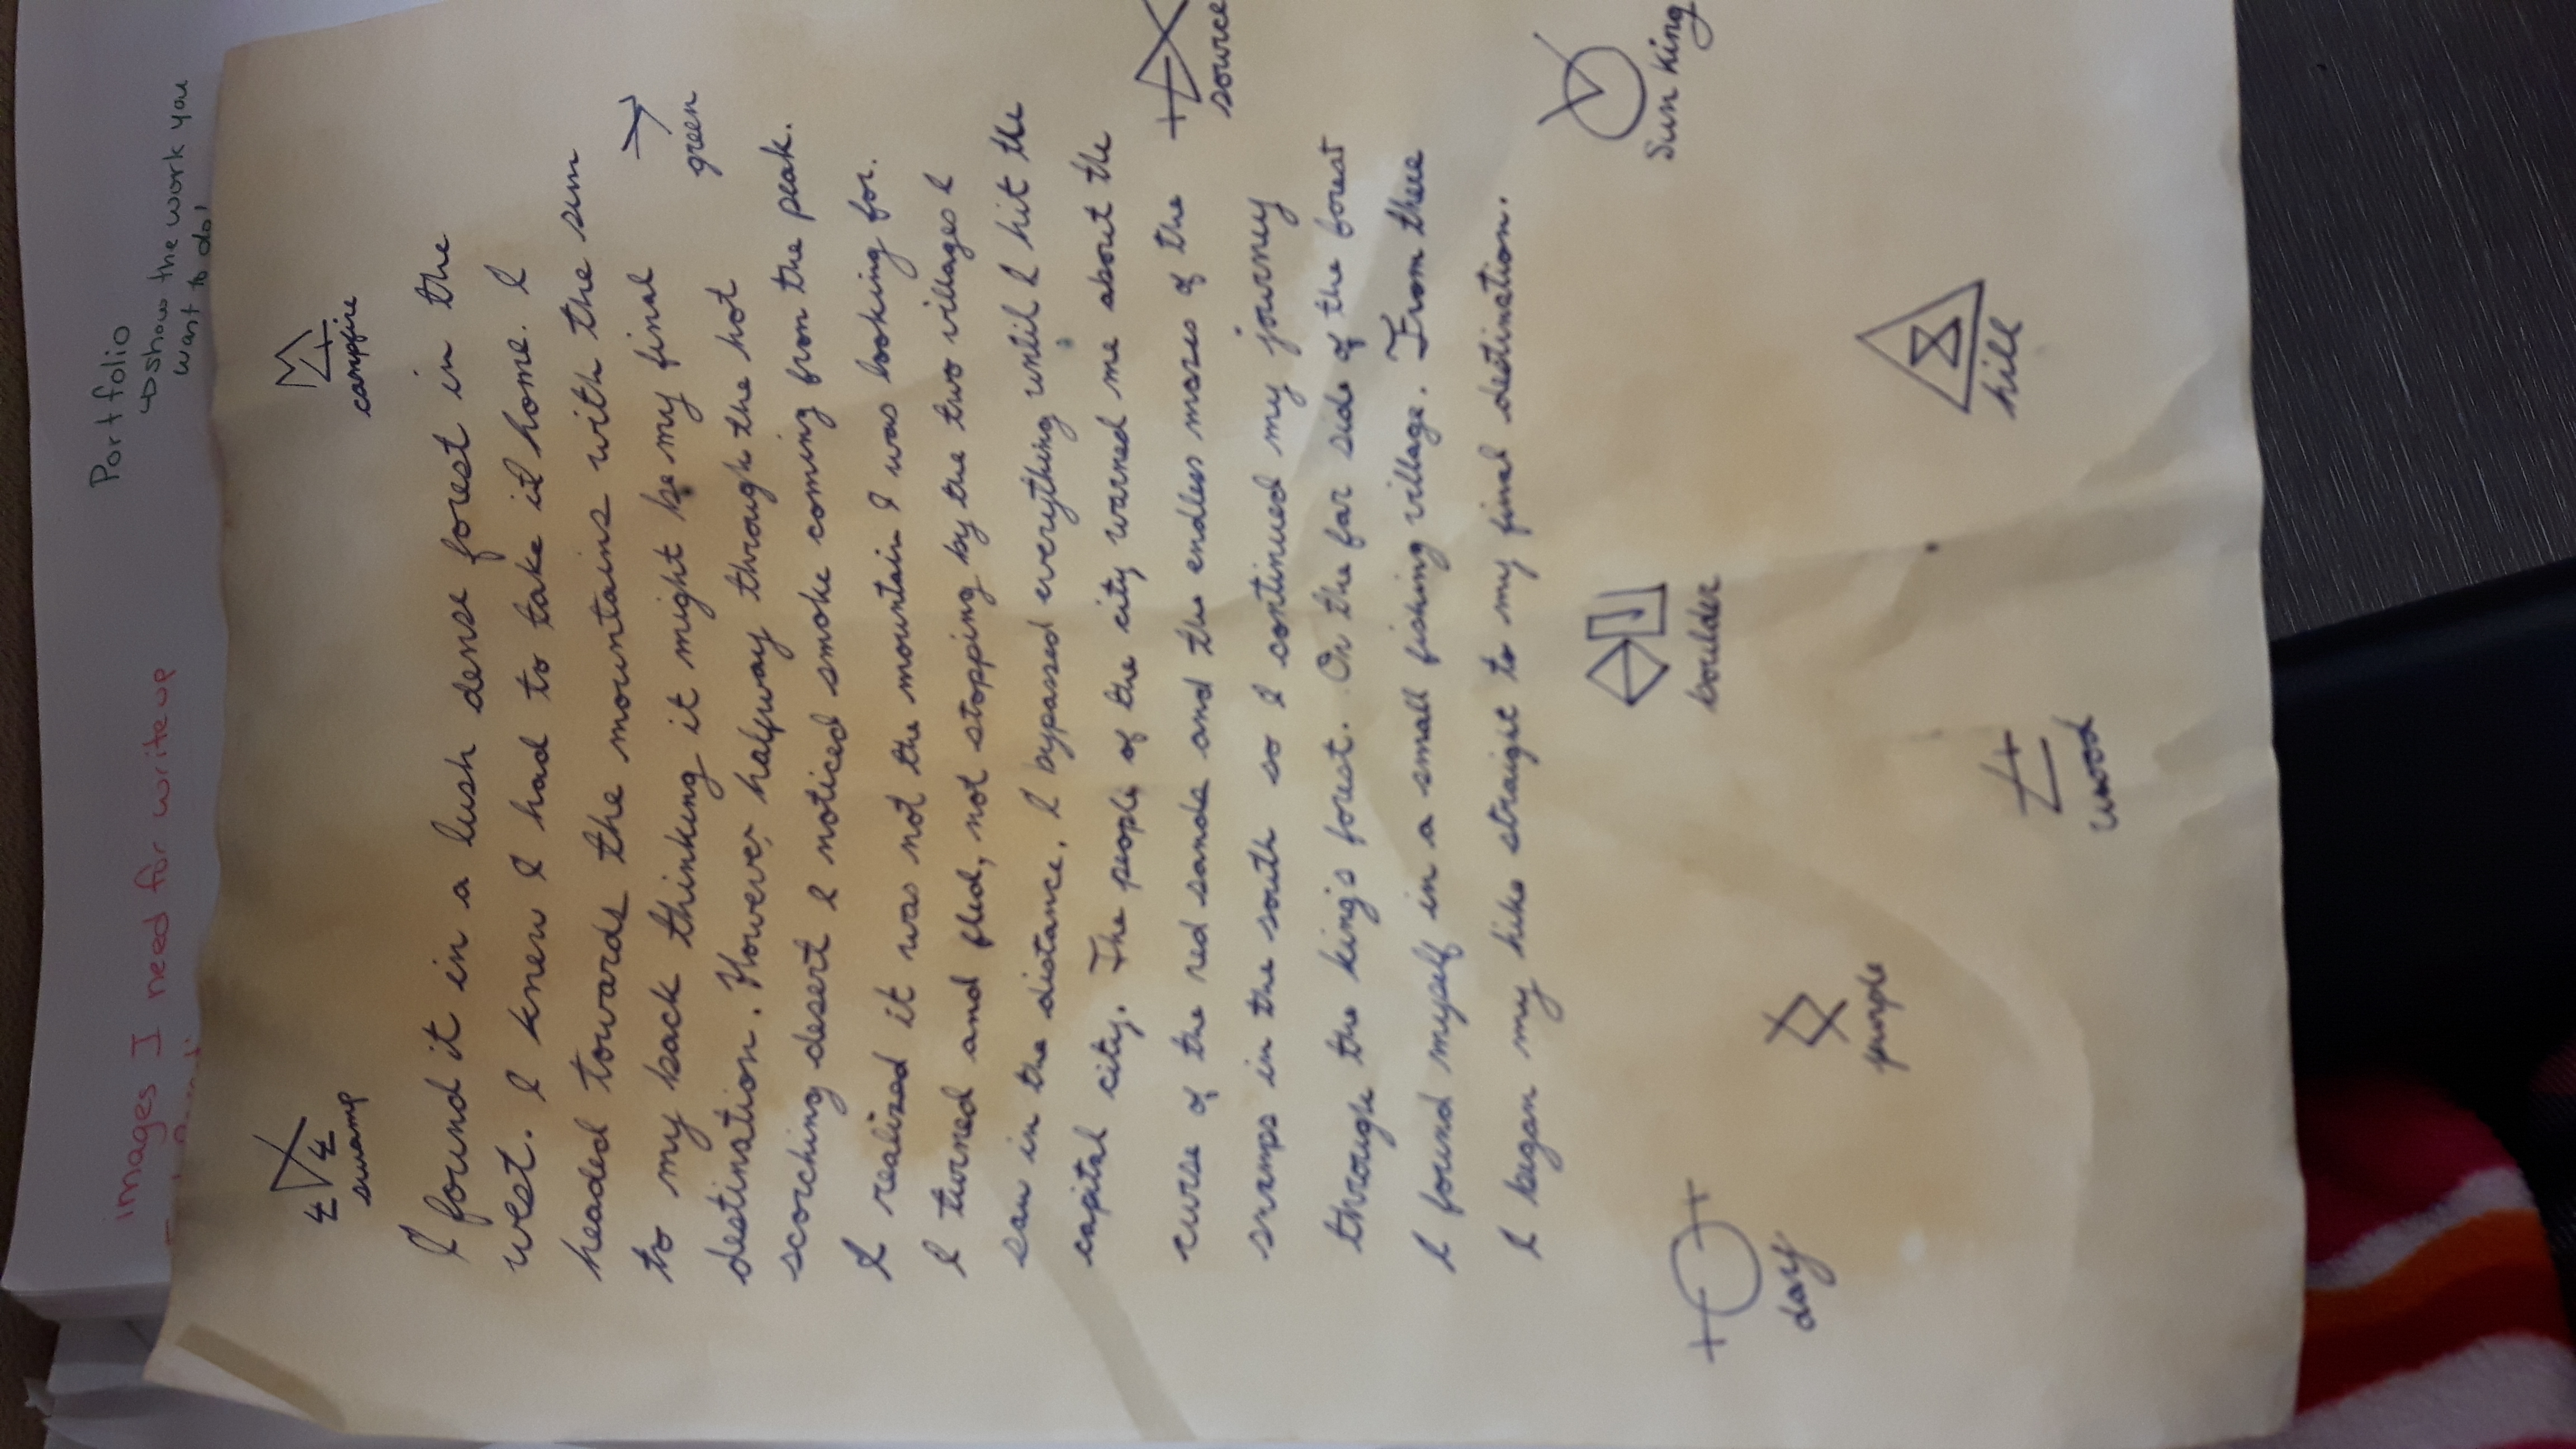 images I need for write up
Portfolio
↳ show the work you
want to do!
swamp
campfire
I found it in a lush dense forest in the
west. I knew I had to take it home. I
headed towards the mountains with the sun
to my back thinking it might be my final
green
destination. However, halfway through the hot
scorching desert I noticed smoke coming from the peak.
I realized it was not the mountain I was looking for.
I turned and fled, not stopping by the two villages I
saw in the distance. I bypassed everything until I hit the
capital city. The people of the city warned me about the
curse of the red sands and the endless mazes of the
source
swamps in the south so I continued my journey
through the king's forest. On the far side of the forest
I found myself in a small fishing village. From there
I began my hike straight to my final destination.
boulder
Sun King
day
purple
hill
wood